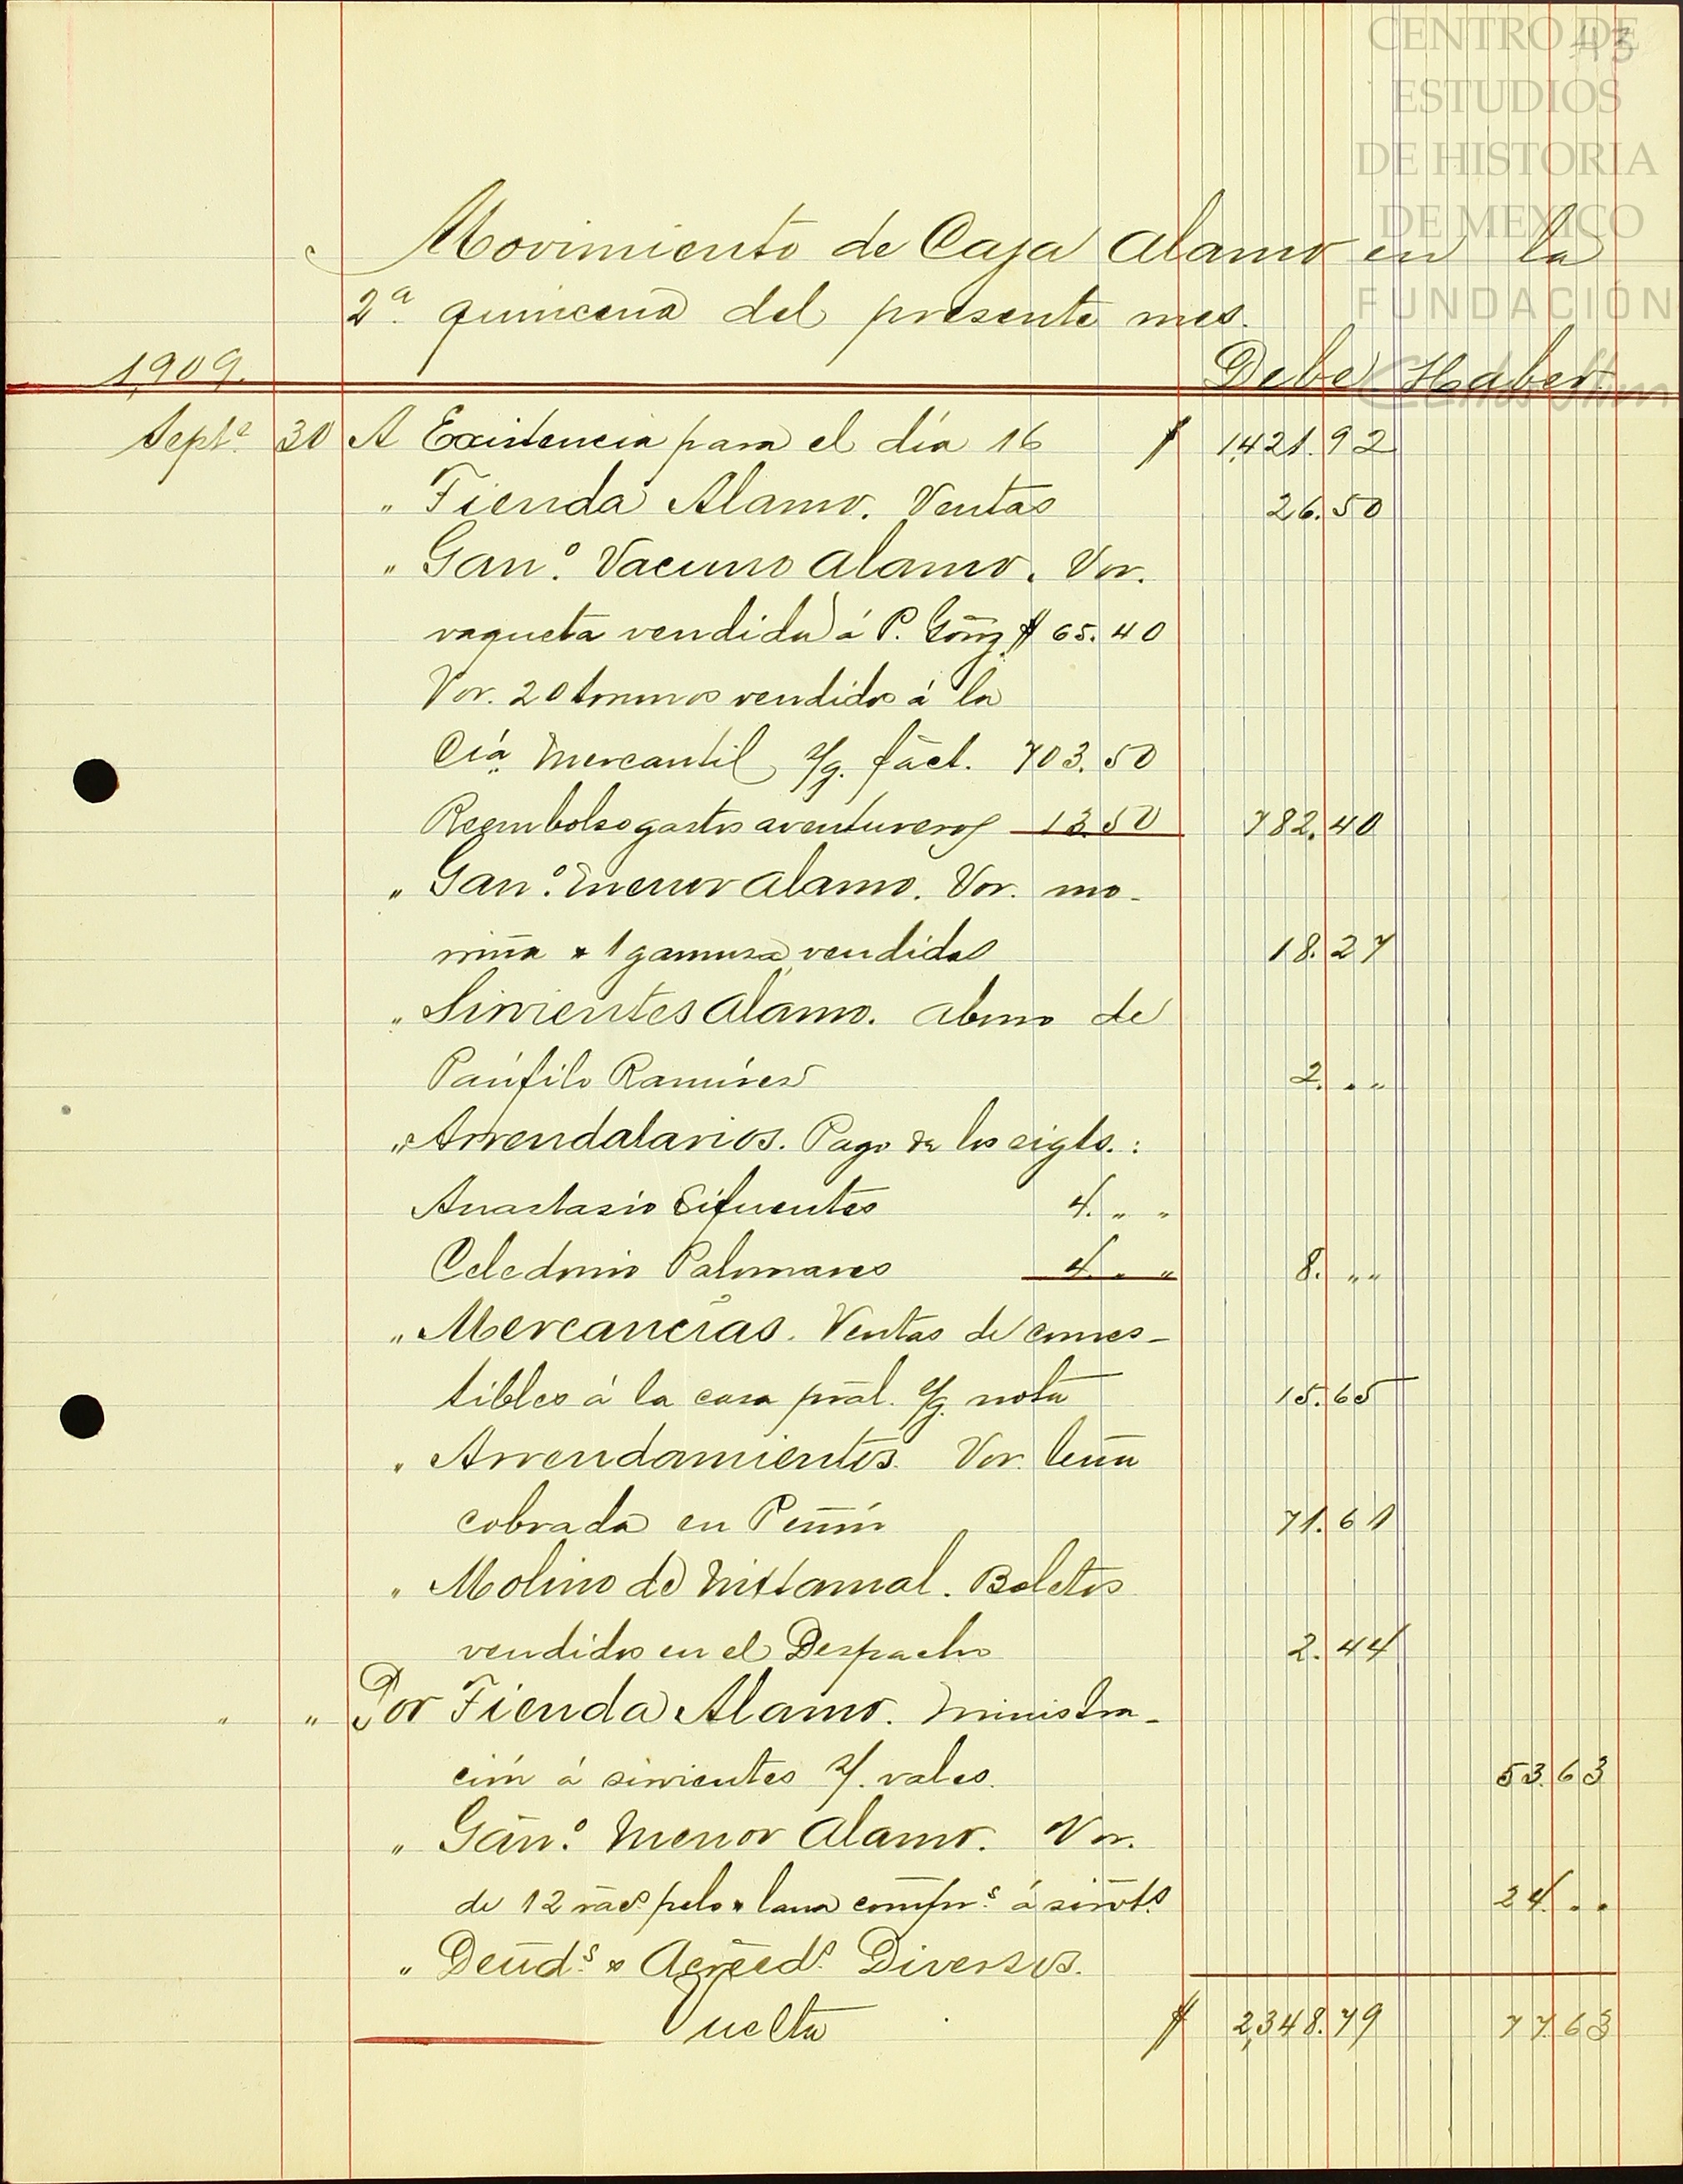 43
CENTRO DE
ESTUDIOS
DE HISTORIA
DE MEXICO
FUNDACIÓN
Movimiento de Caja Alamo en la
2ª quincena del presente mes.
1,909. Debe Haber.
Septe 30 A Existencia para el día 16 $ 1,421.92
" Tienda Alamo. Ventas 26.50
" Gan.º Vacuno Alamo. Vor.
vaqueta vendida á P. Gonz. $ 65.40
Vor. 20 torunos vendidos á la
Cía. Mercantil s/g. fact. 703.50
Reembolso gastos aventureros 13.50 782.40
" Gan.º Menor Alamo. Vor. mo-
niña & 1 gamusa vendidas 18.27
" Sirvientes Alamo. Abono de
Pánfilo Ramírez 2. ..
" Arrendatarios. Pago de los sigts.:
Anastasio Sifuentes 4. " "
Celedonio Palomares 4. " " 8. ""
" Mercancías. Ventas de comes-
tibles á la casa pral. s/g. nota 15.65
" Arrendamientos. Vor. leña
cobrada en Peñón 71.61
" Molino de Nixtamal. Boletos
vendidos en el Despacho 2.44
" " Por Tienda Alamo. Ministra-
ción á sirvientes s/. vales. 53.63
" Gan.º Menor Alamo. Vor.
de 12 pelo & lana comprs. á sirvts. 24. ..
" Deuds. & Acreeds. Diversos.
Vuelta $ 2,348.79 77.63